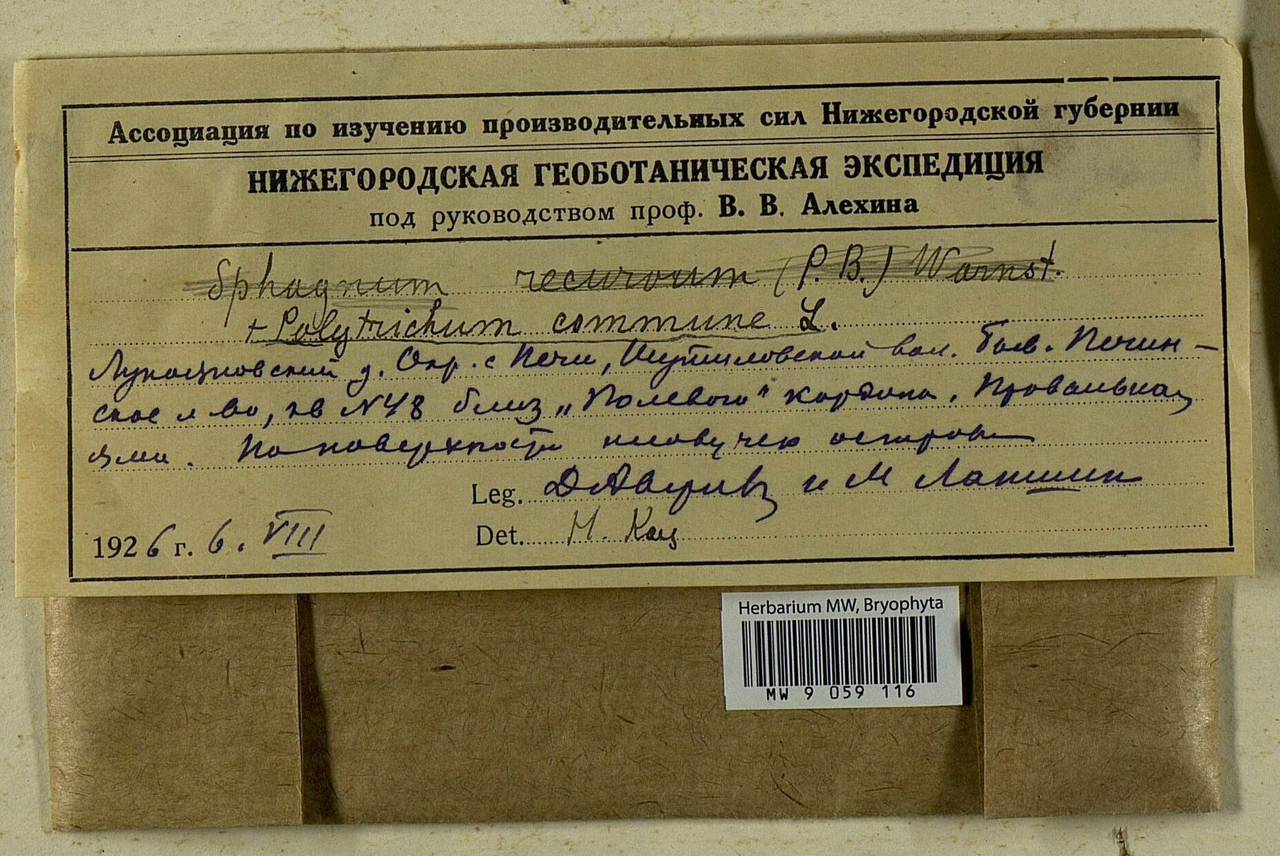 Ассоциация по изучению производительных сил Нижегородской губернии
НИЖЕГОРОДСКАЯ ГЕОБОТАНИЧЕСКАЯ ЭКСПЕДИЦИЯ
под руководством проф. В. В. Алехина
Sphagnum recurvum (P. B.) Warnst.
+ Polytrichum commune L.
Лукояновский у. Окр. с Печи, вол. Печин-
ское л-во, кв N48 близ „Полевого" кордона. Провальная
яма. По поверхности пловучего острова
Leg. и М Лапшин
1926 г. 6. VIII
Det. Н. Кац
Herbarium MW, Bryophyta
MW 9 059 116